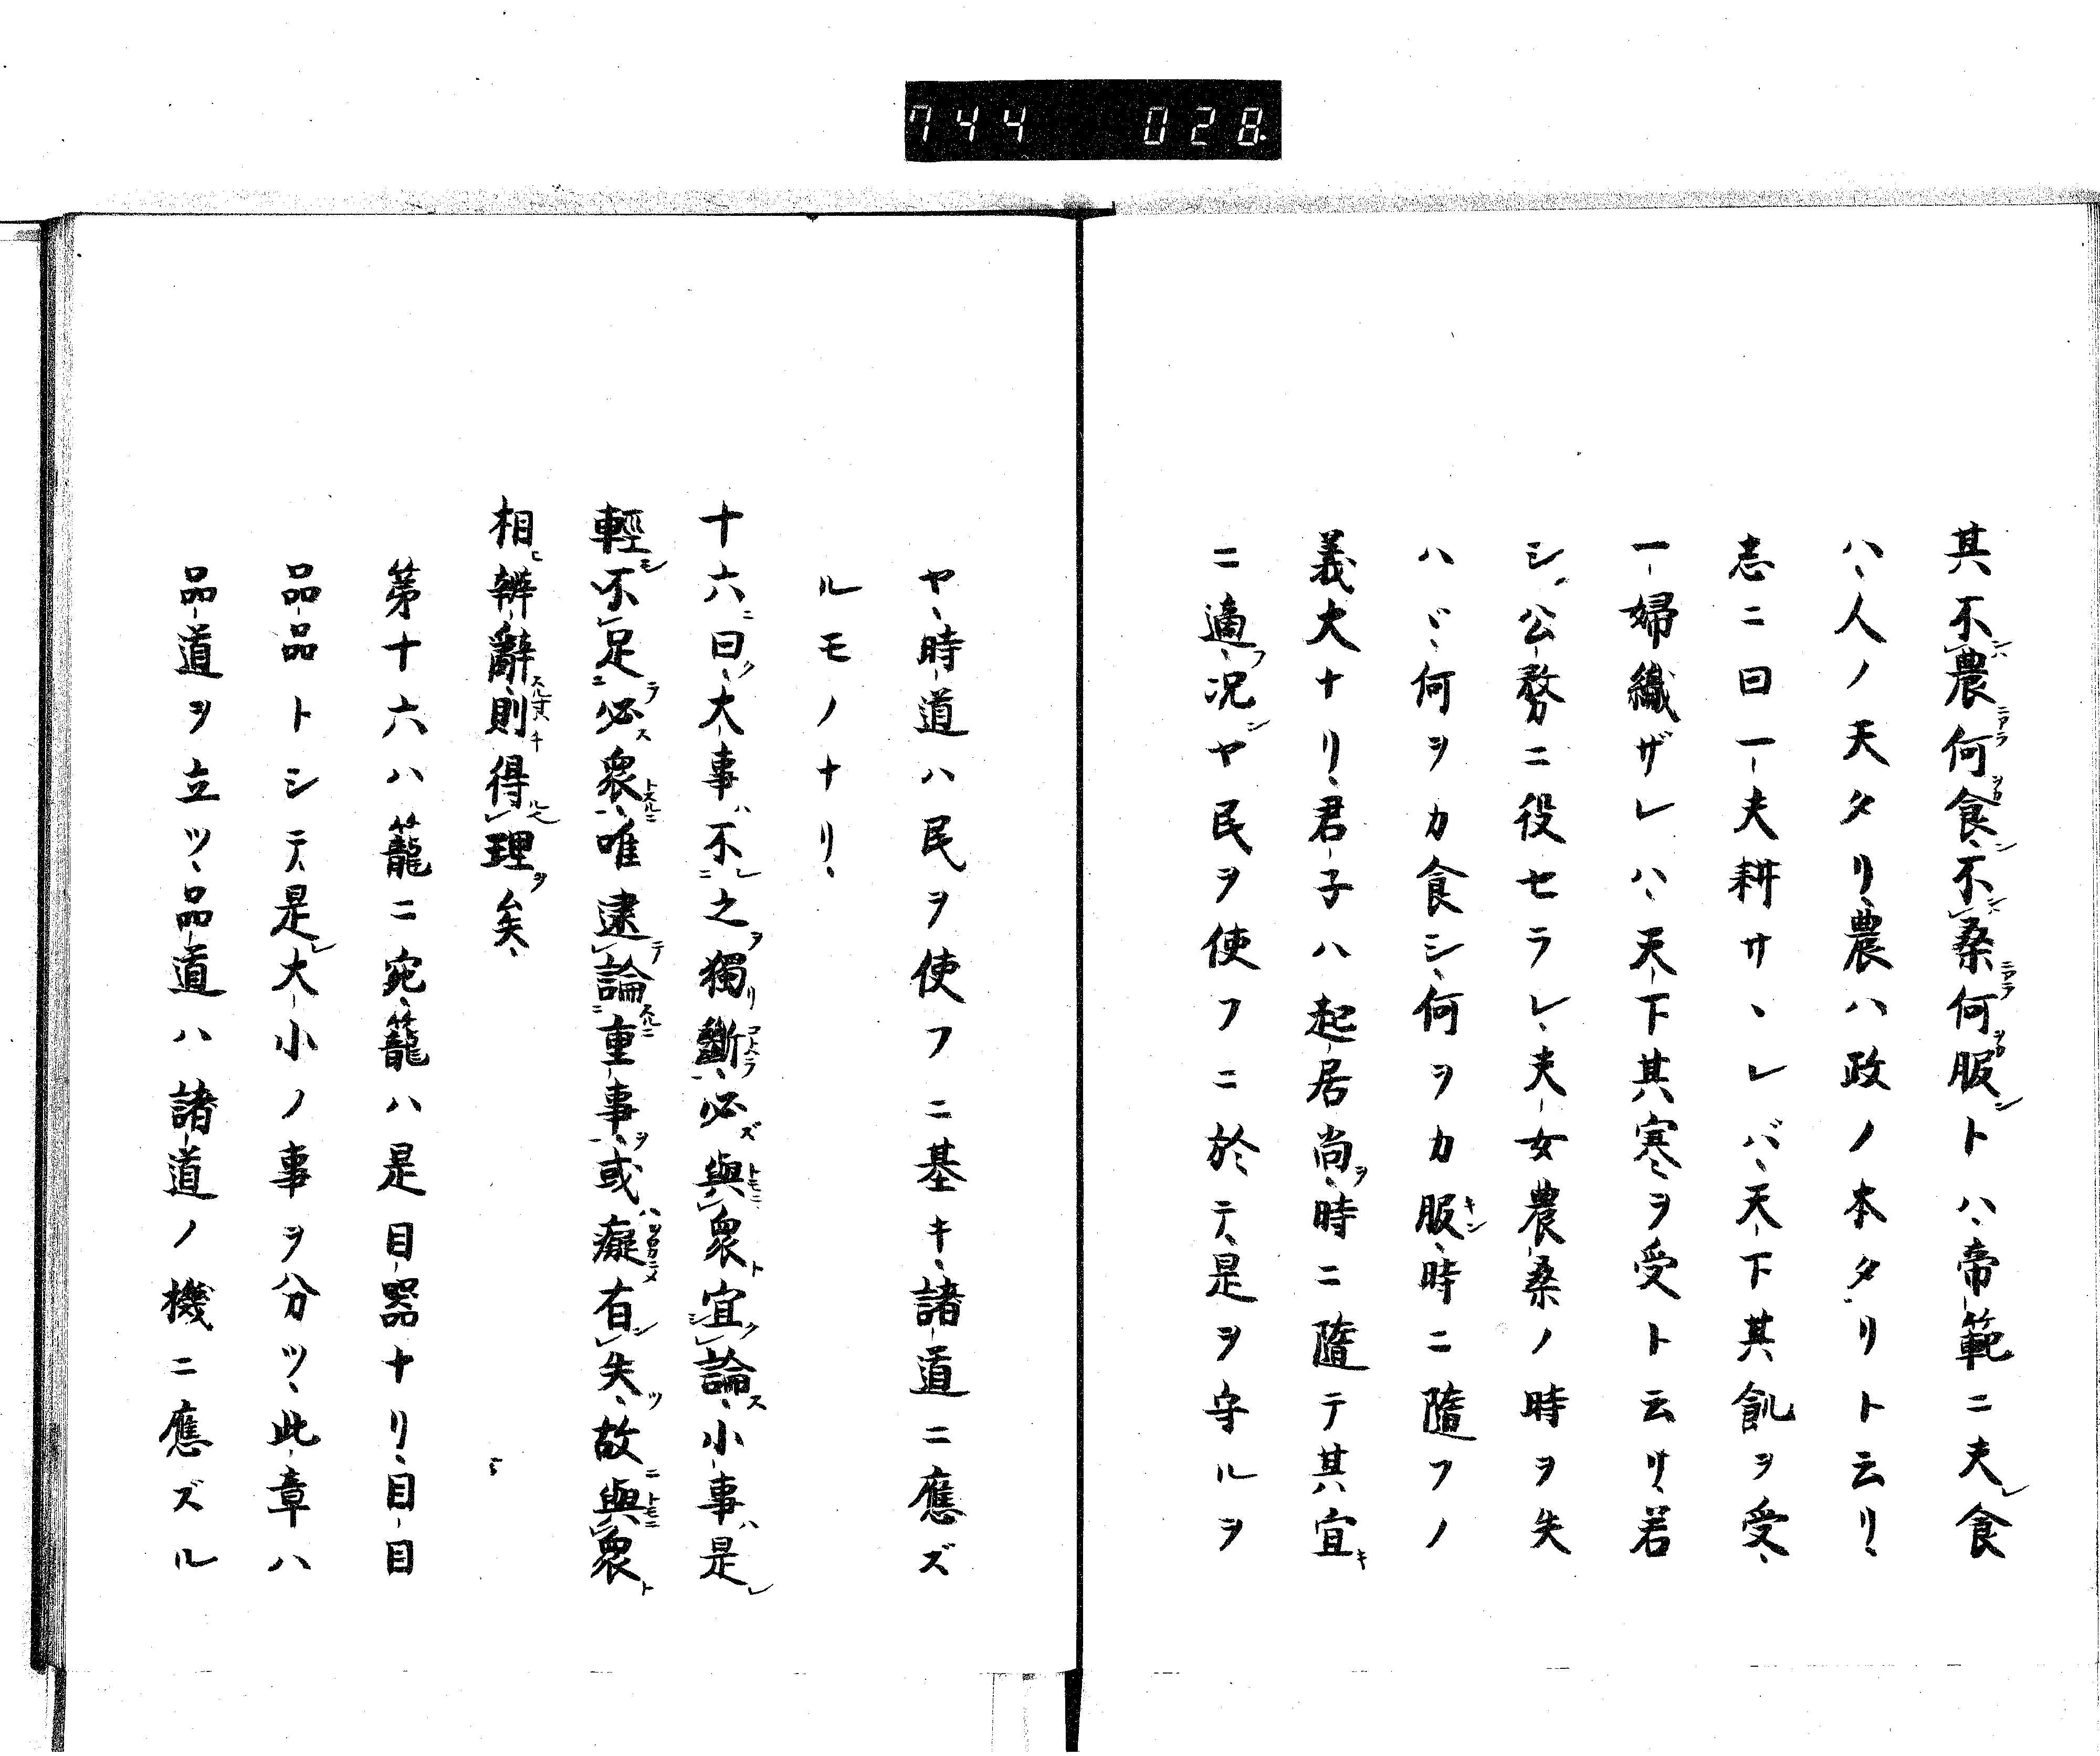 744 028.
其不農何食、不桑何服トハ、帝範ニ夫食
ハ、人ノ天タリ、農ハ政ノ本タリト云リ、
志ニ曰一夫耕サヽレバ、天下其飢ヲ受、
一婦織ザレハ、天下其寒ヲ受ト云リ、若
シ、公務ニ役セラレ、夫女農桑ノ時ヲ失
ハヾ、何ヲカ食シ、何ヲカ服、時ニ隨フノ
義大ナリ、君子ハ起居尚、時ニ隨テ其宜
ニ適、况ヤ民ヲ使フニ於テ、是ヲ守ルヲ
ヤ、時道ハ民ヲ使フニ基キ、諸道ニ應ズ
ルモノナリ、
十六曰、大事不之獨斷、必與衆宜論、小事是
輕不足必衆、唯逮論重事、或癡有失、故與衆
相辨辭、則得理矣、
第十六ハ籠ニ宛、籠ハ是目器ナリ、目目
品品トシテ、是大小ノ事ヲ分ツ、此章ハ
品道ヲ立ツ、品道ハ諸道ノ機ニ應ズル